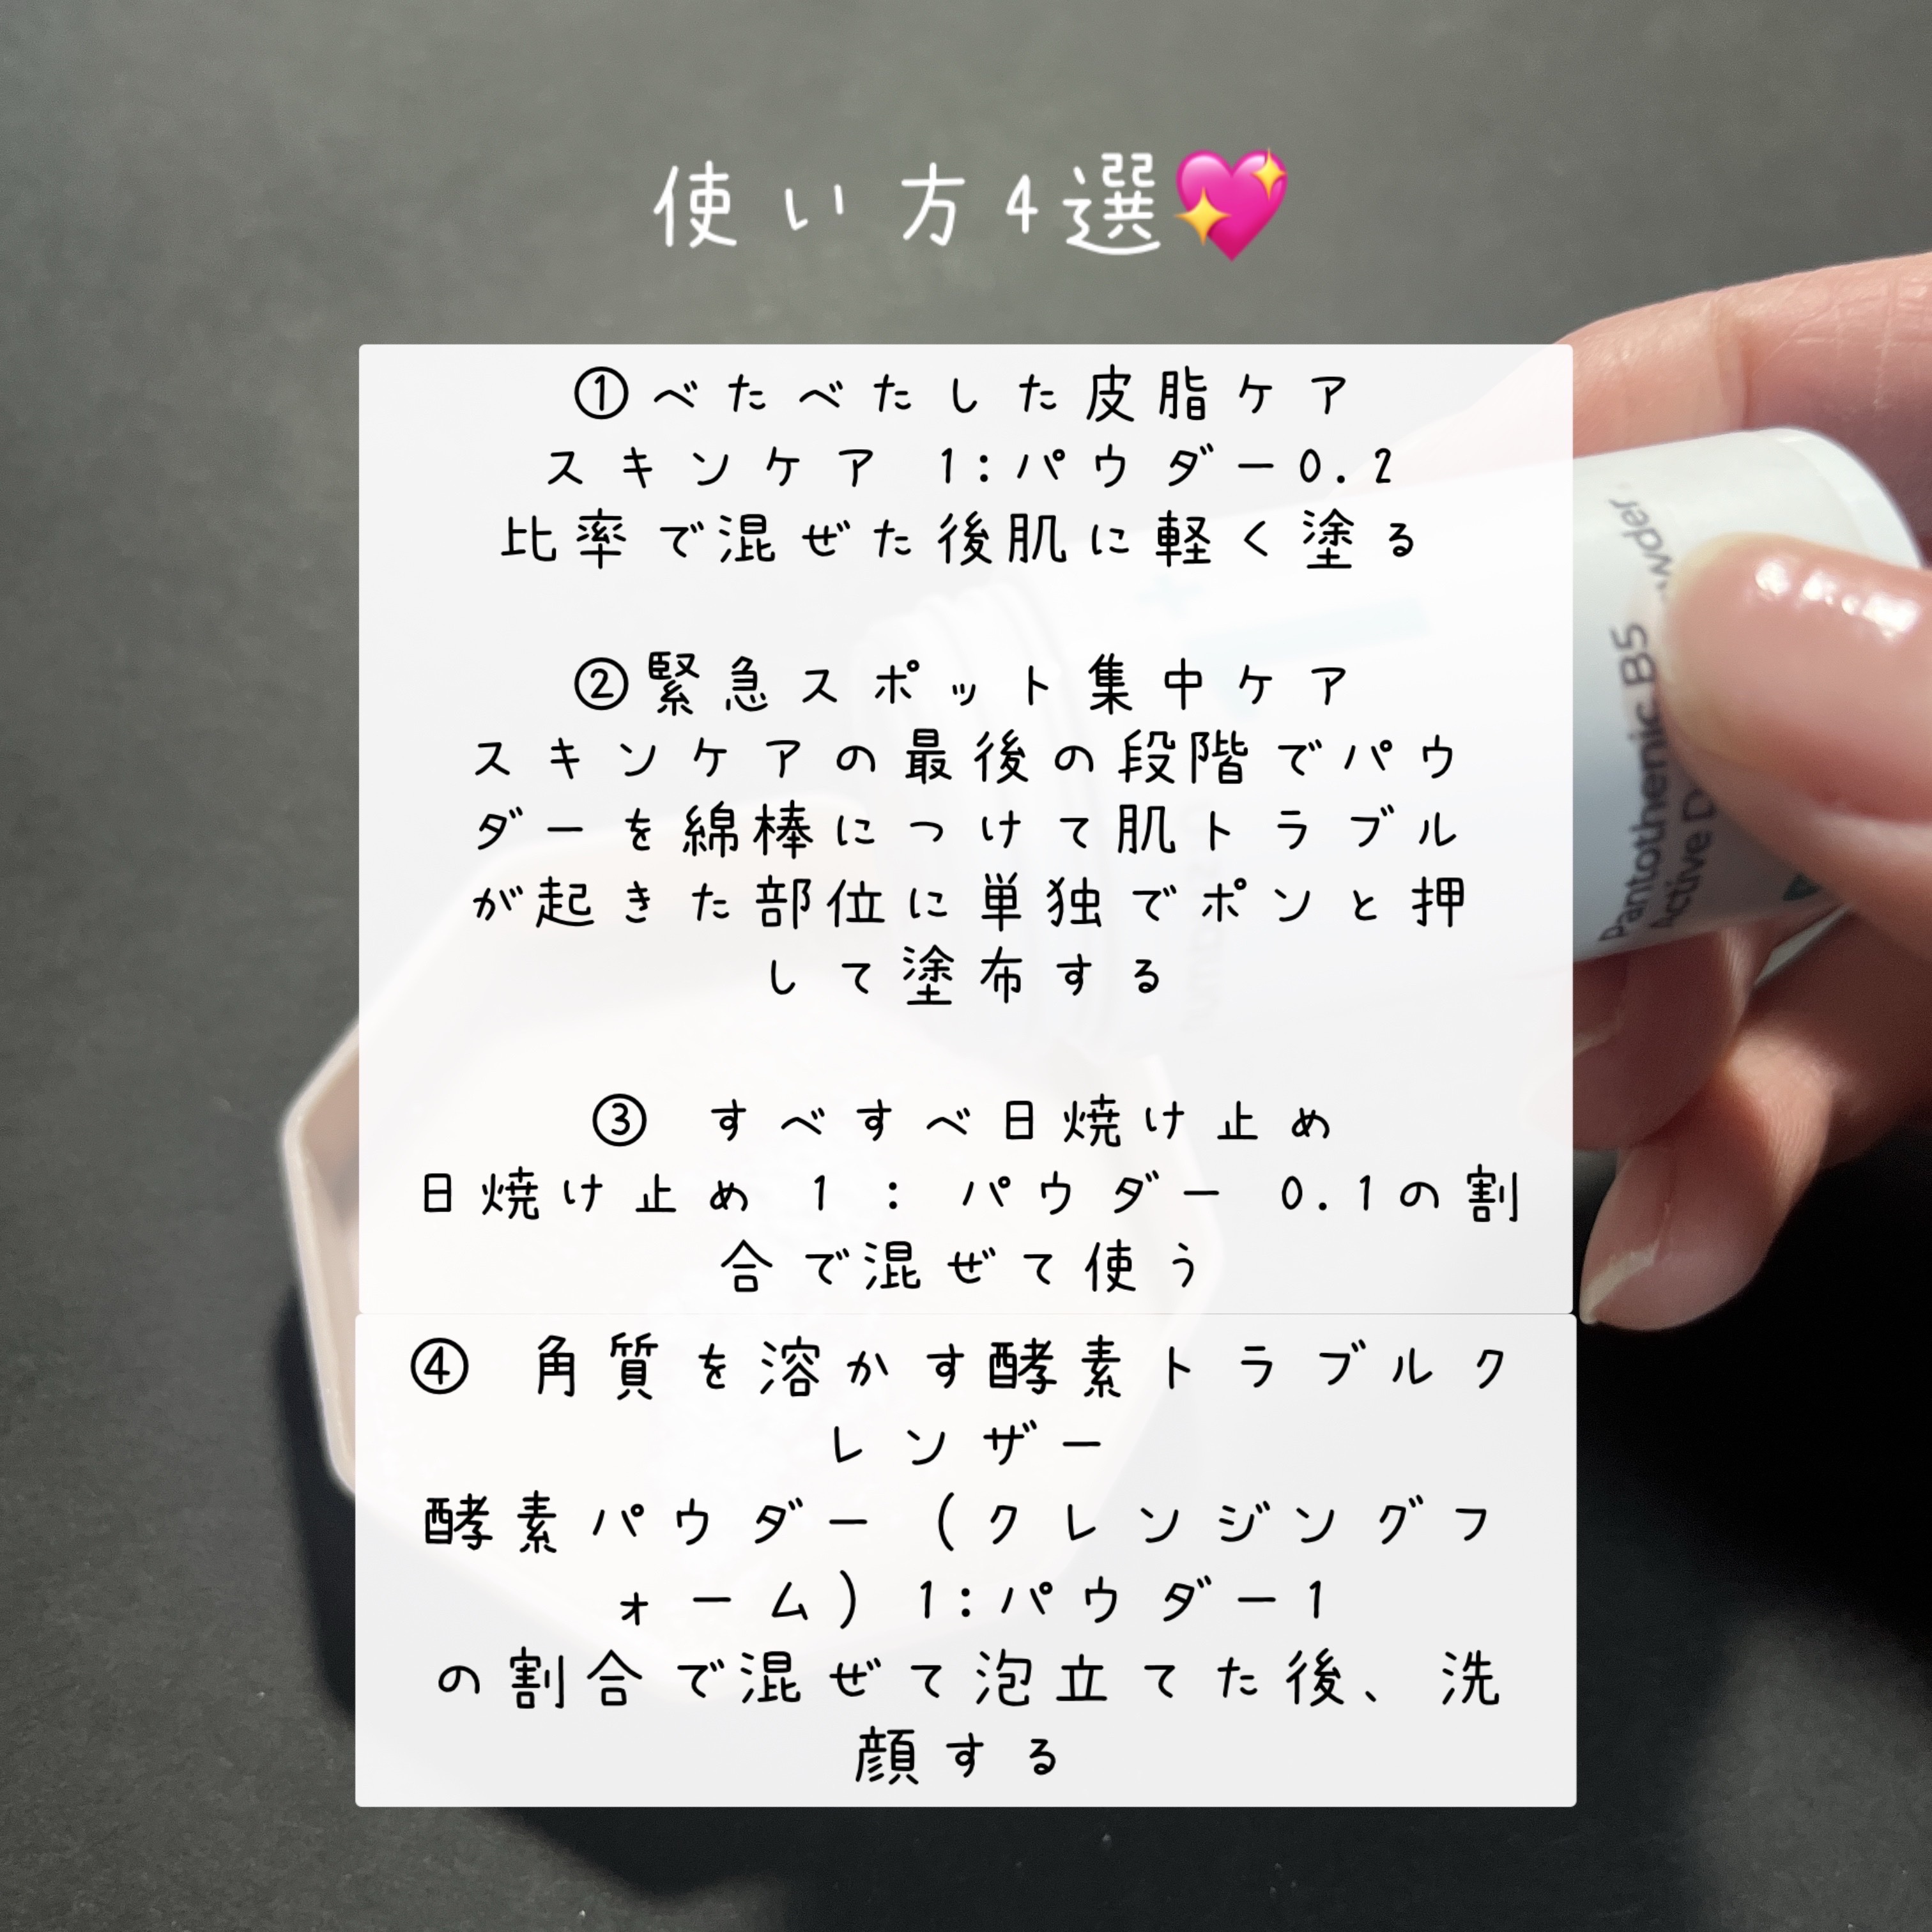 使い方4選💖
①べたべたした皮脂ケア
スキンケア 1:パウダー0.2
比率で混ぜた後肌に軽く塗る
②緊急スポット集中ケア
スキンケアの最後の段階でパウ
ダーを綿棒につけて肌トラブル
が起きた部位に単独でポンと押
して塗布する
③ すべすべ日焼け止め
日焼け止め 1 : パウダー 0.1の割
合で混ぜて使う
④ 角質を溶かす酵素トラブルク
レンザー
酵素パウダー (クレンジングフ
ォーム) 1:パウダー1
の割合で混ぜて泡立てた後、洗
顔する
Pantothenic B5
Active